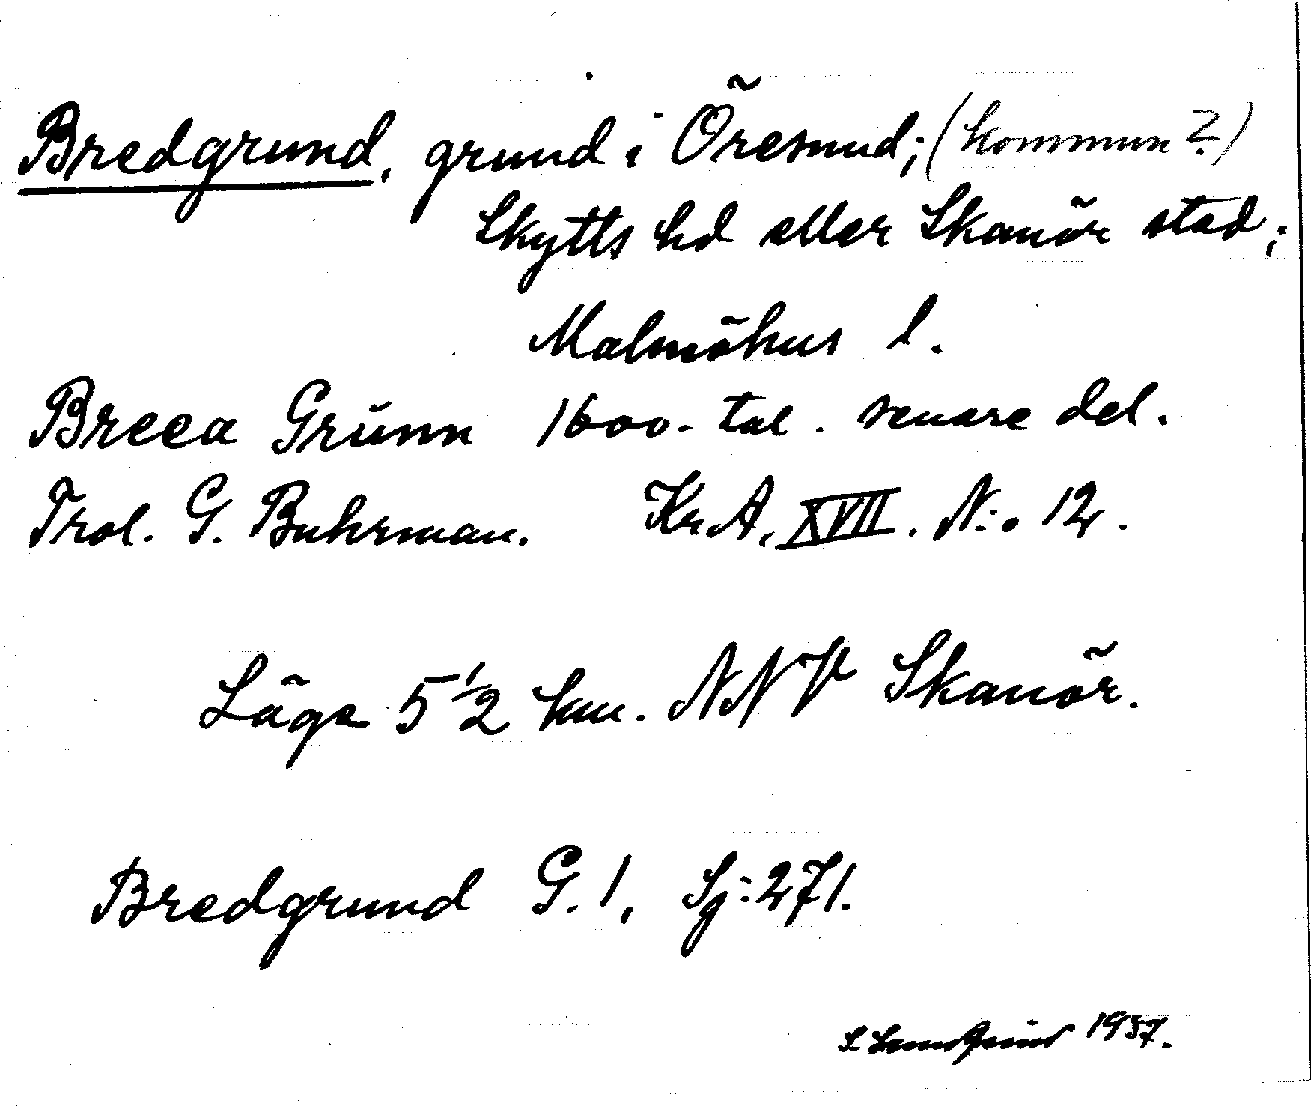 Bredgrund, grund i Öresund; (kommun?)
Skytts hd eller Skanör stad;
Malmöhus l.
Breea Grünn 1600-tal. senare del.
Trol. G. Buhrman. Kr.A, XVII. N:o 12.
Läge 5 1/2 km. NNV Skanör.
Bredgrund G. 1, Sj: 271.
1937.